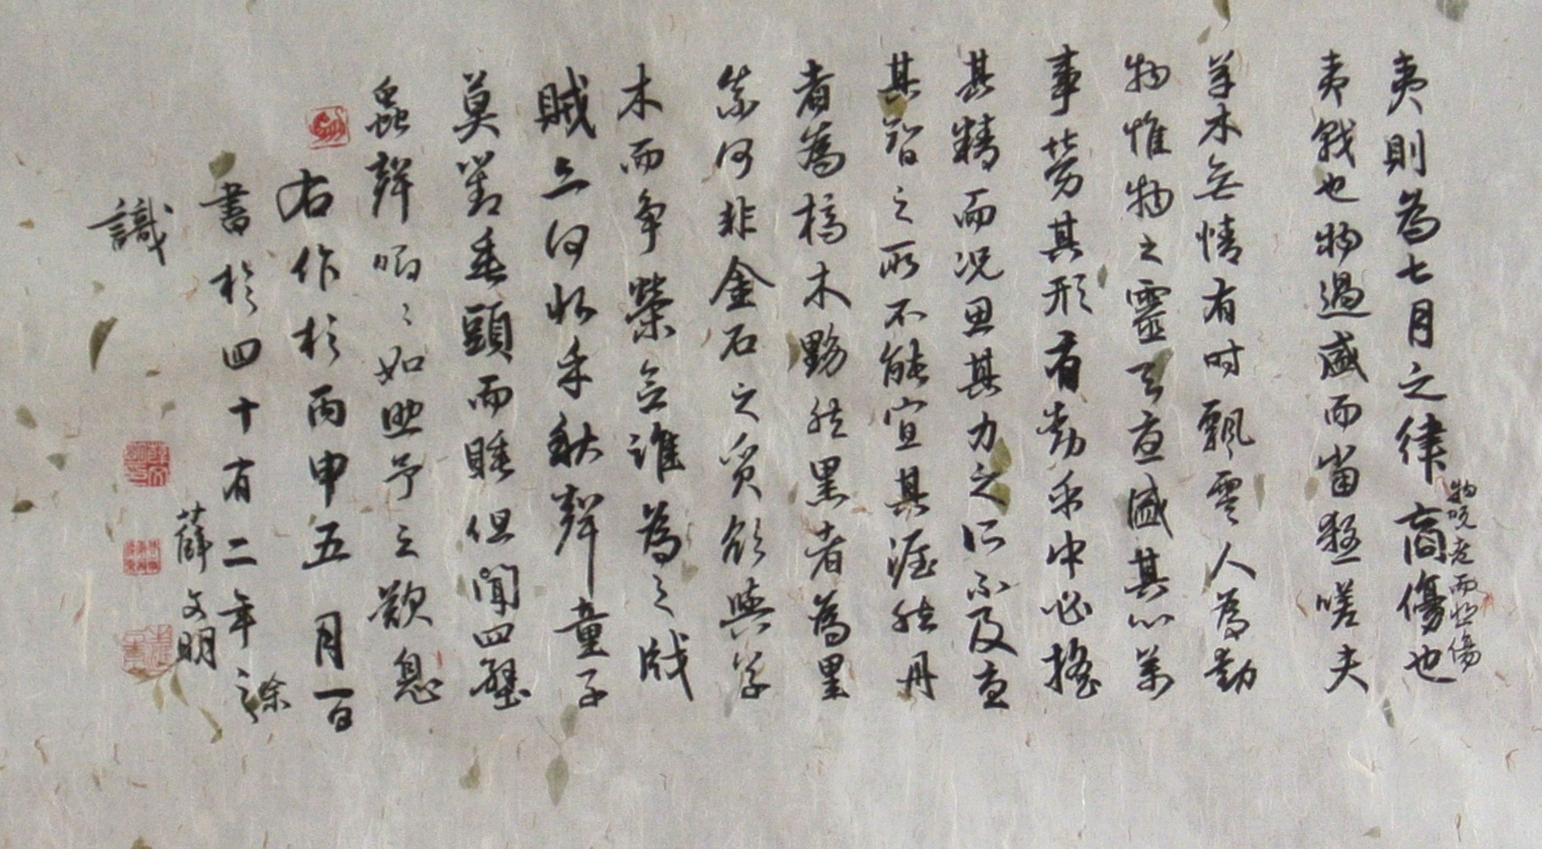 夷則為七月之律商傷也
物既老而悲傷
夷戮也物過盛而當殺嗟夫
草木無情有时飄零人為動
物惟物之靈百憂感其心萬
事勞其形有動乎中必搖
其精而況思其力之所不及憂
其智之所不能宜其渥然丹
者為槁木黟然黑者為星
奈何非金石之質欲與草
木而爭榮念誰為之戕
賊亦何恨乎秋聲童子
莫對垂頭而睡但聞四壁
蟲聲唧〻如助予之歎息
右作於丙申五月一日
書於四十有二年
薛文明
識